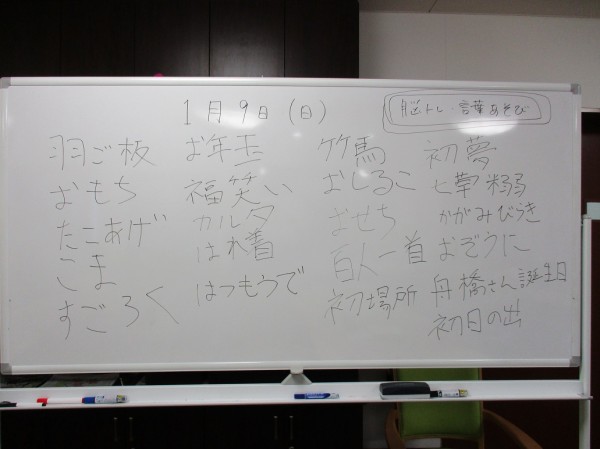 1月9日(日)
脳トレ・言葉あそび
羽ご板
おもち
たこあげ
こま
すごろく
お年玉
福笑い
カルタ
はれ着
はつもうで
竹馬
おしるこ
おせち
百人一首
初場所
初夢
七草粥
かがみびらき
おぞうに
舟橋さん誕生日
初日の出